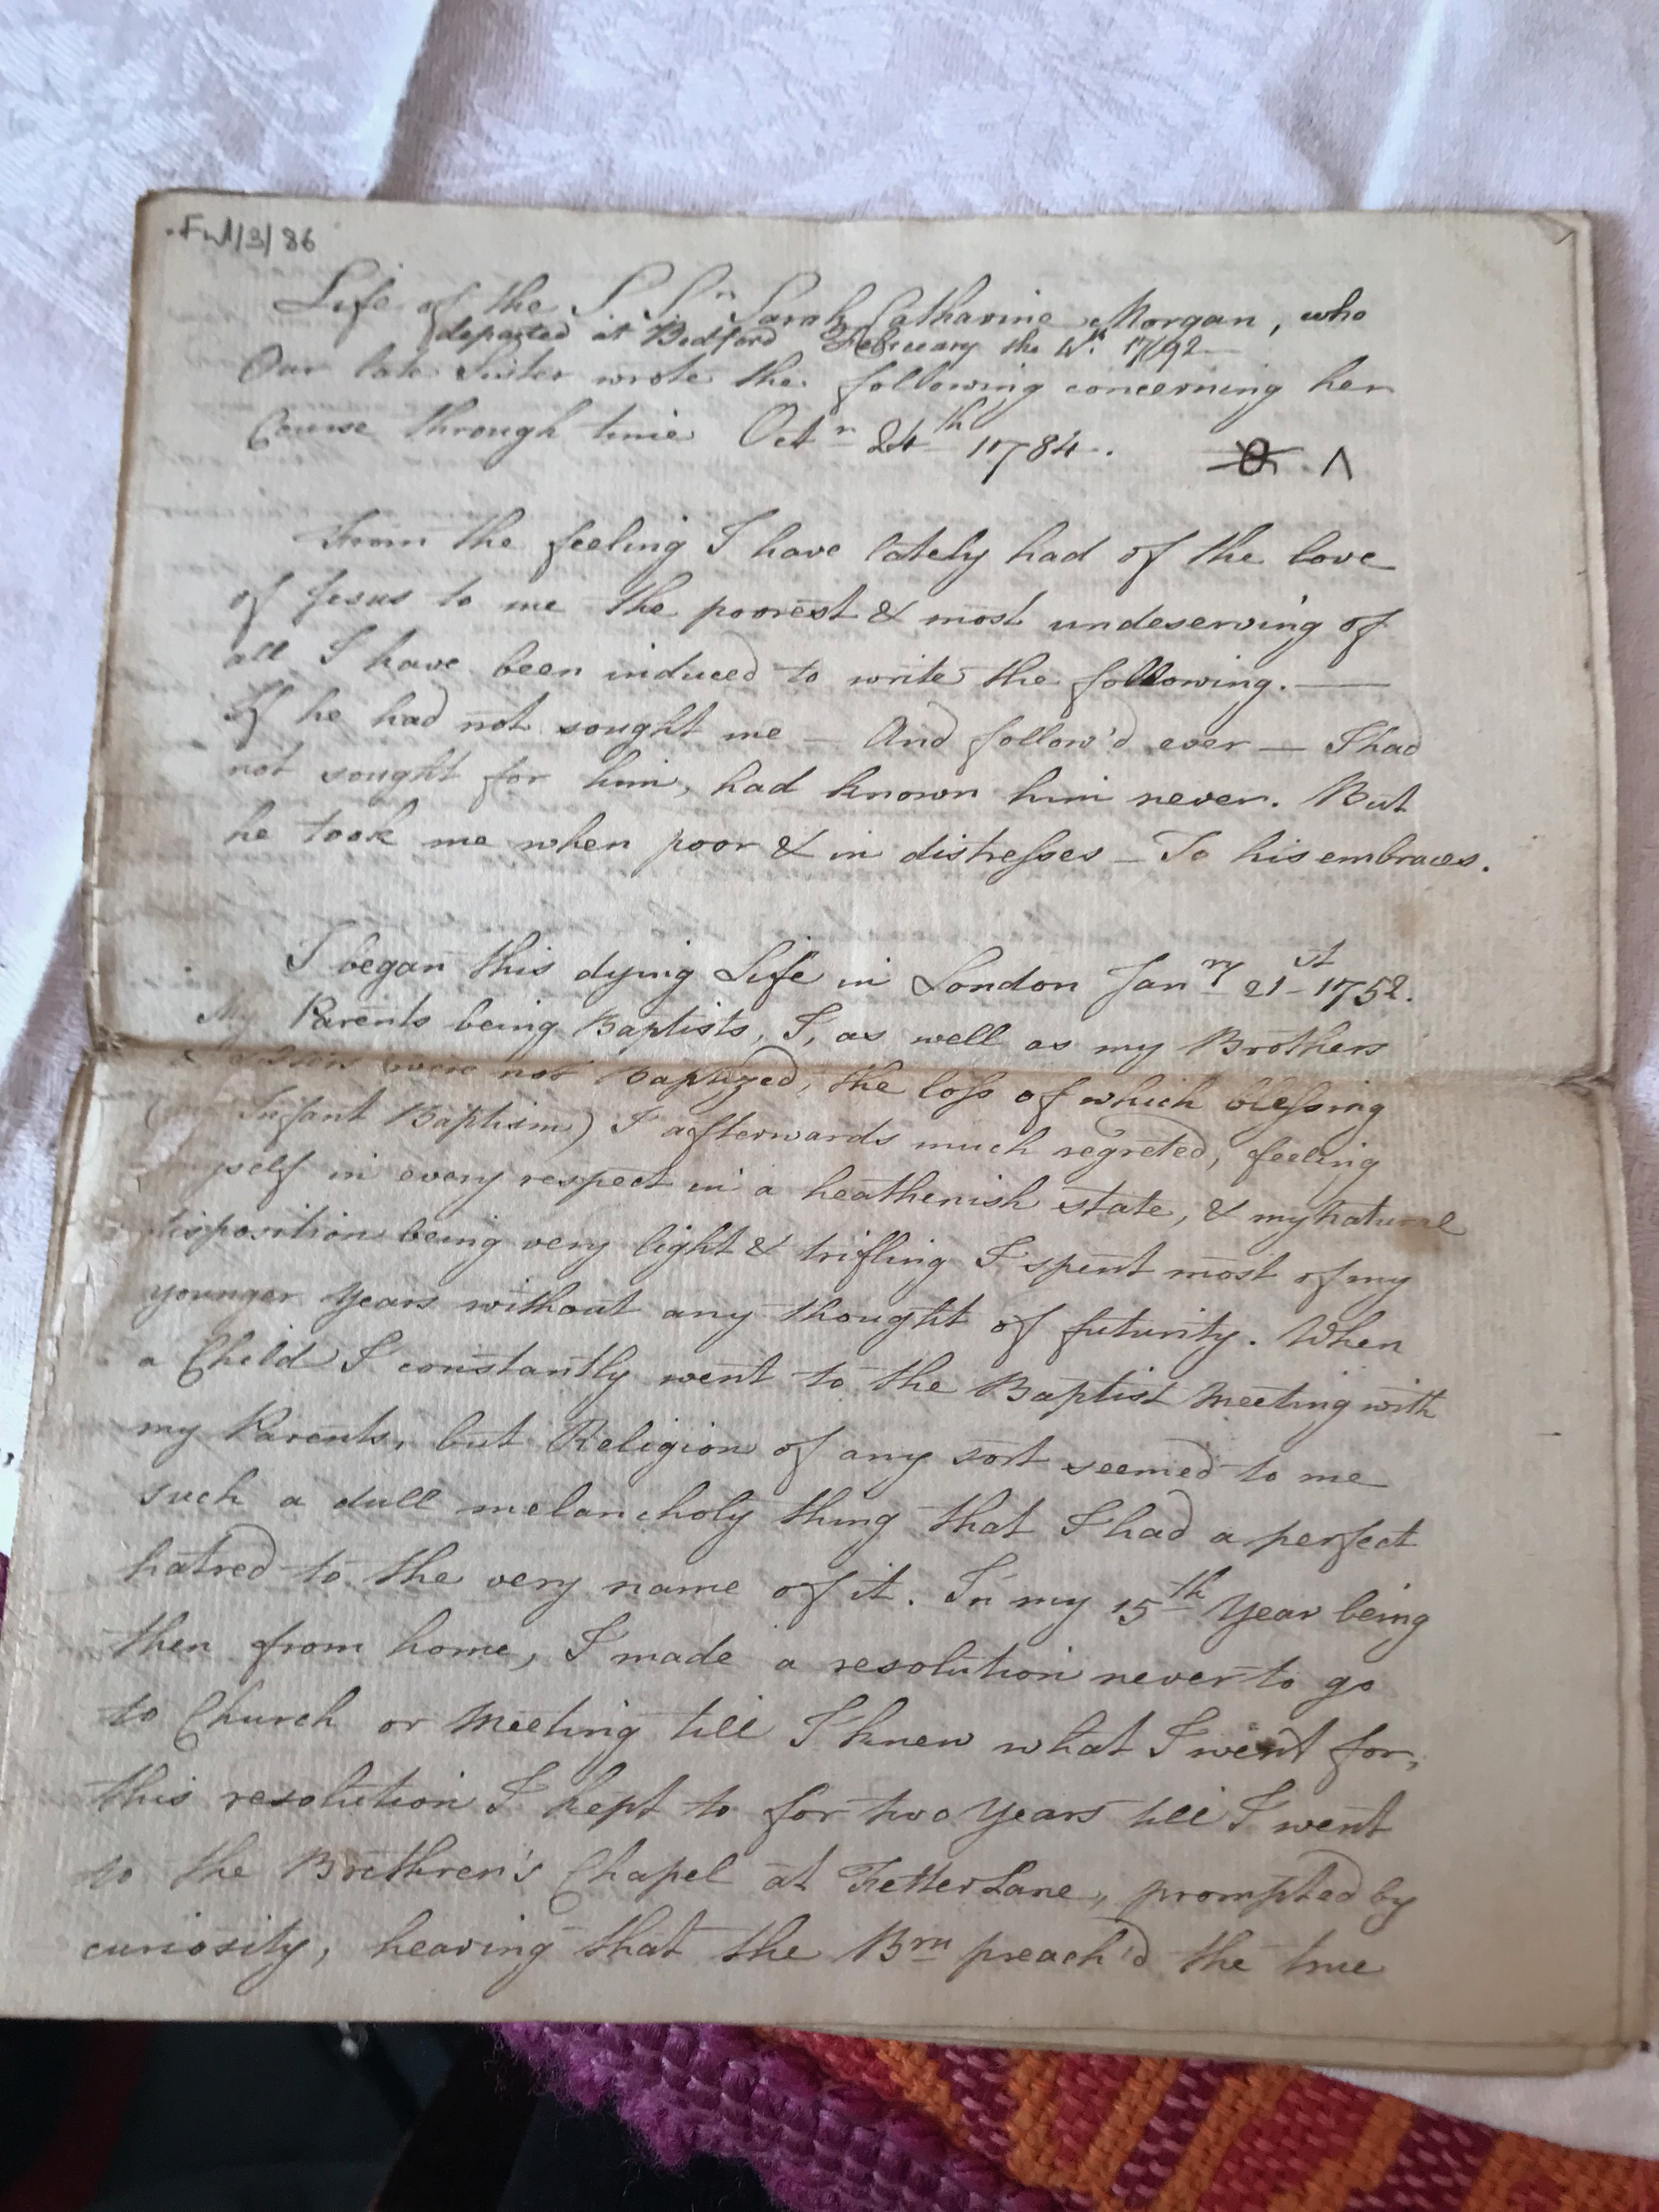 Ful/3/86
Life of the S. Sr. Sarah Catharine Morgan, who
departed at Bedford February the 4th. 1792
Our late Sister wrote the following concerning her
Course through time Octr 24th 1784.
From the feeling I have lately had of the love
of Jesus to me the poorest & most undeserving of
all I have been induced to write the following.—
If he had not sought me — And follow'd ever — I had
not sought for him, had known him never. But
he took me when poor & in distresses — To his embraces.
I began this dying Life in London Janry 21st 1752.
My Parents being Baptists, I, as well as my Brothers
& were not Baptized, the loss of which blessing
Infant Baptism) I afterwards much regreted, feeling
myself in every respect in a heathenish state, & my natural
disposition being very light & trifling I spent most of my
younger Years without any thought of futurity. When
a Child I constantly went to the Baptist Meeting with
my Parents, but Religion of any sort seemed to me
such a dull melancholy thing that I had a perfect
hatred to the very name of it. In my 15th Year being
then from home, I made a resolution never to go
to Church or Meeting till I knew what I went for,
this resolution I kept to for two Years till I went
to the Brethren's Chapel at Fetter Lane, prompted by
curiosity, hearing that the Brn preach'd the true